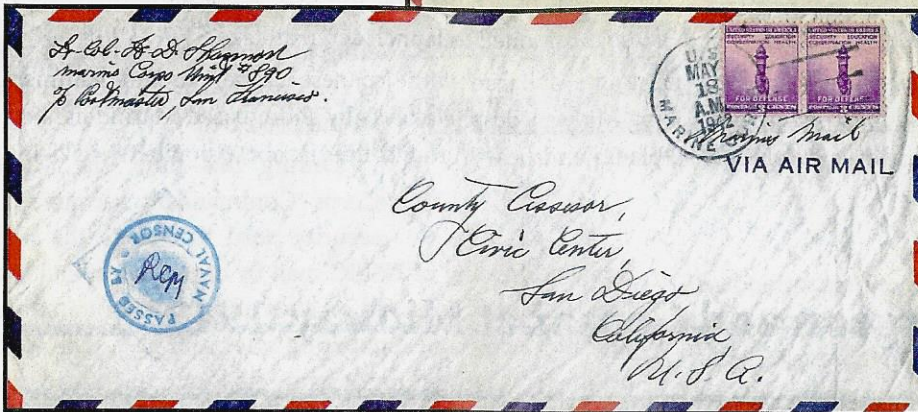 Lt-Col-H-D-Shannon
Marine Corps Unit #890
℅ Postmaster, San Francisco.
U.S.
MAY
18
A.M.
1942
MARINE
UNITED STATES OF AMERICA
SECURITY EDUCATION
CONSERVATION HEALTH
FOR DEFENSE
UNITED STATES OF AMERICA
SECURITY EDUCATION
CONSERVATION HEALTH
FOR DEFENSE
3 CENTS
Marine Mail
VIA AIR MAIL
County Assesor,
Civic Center,
San Diego
California,
U.S.A.
PASSED BY NAVAL CENSOR